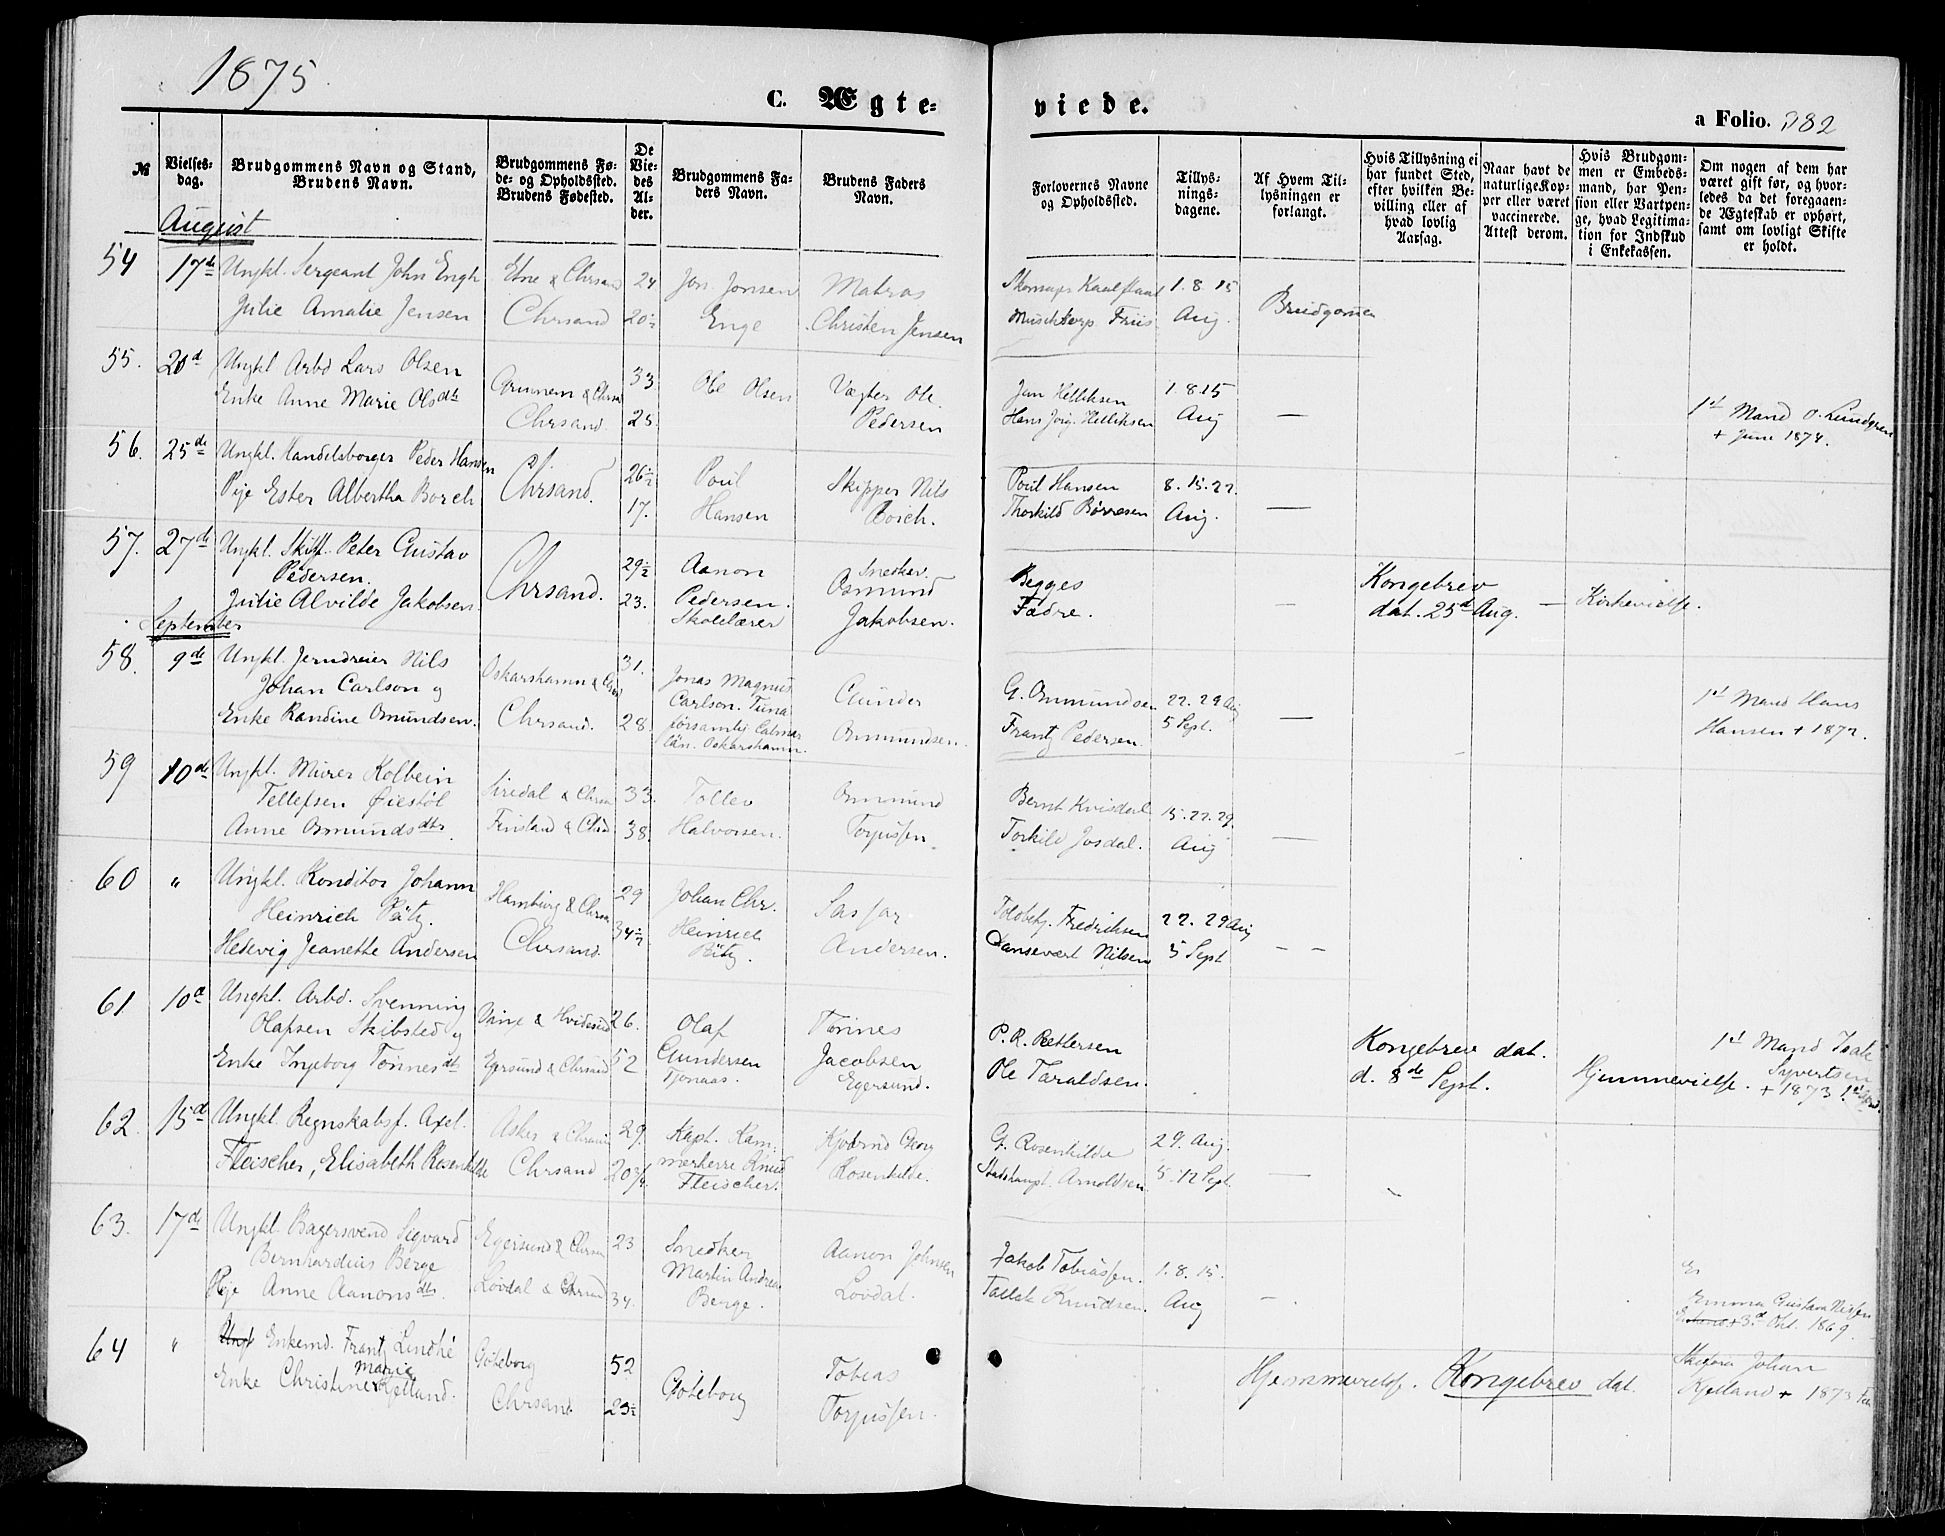 1875
C. Ægte-
viede.
a Folio. 382
№
Vielses-
dag.
Brudgommens Navn og Stand,
Brudens Navn.
Brudgommens Fø-
de- og Opholdssted.
Brudens Fødested.
De
Vie-
des
Al-
der.
Brudgommens Fa-
ders Navn.
Brudens Faders
Navn.
Forlovernes Navne
og Opholdssted.
Tillys-
nings-
dagene.
Af Hvem Til-
lysningen er
forlangt.
Hvis Tillysning ei
har fundet Sted,
efter hvilken Be-
villing eller af
hvad lovlig
Aarsag.
Naar havt de
naturlige Kop-
per eller været
vaccinerede.
Attest derom.
Hvis Brudgom-
men er Embeds-
mand, har Pen-
sion eller Vartpen-
ge, hvad Legitima-
tion for Indskud
i Enkekassen.
Om nogen af dem har
været gift før, og hvor-
ledes da det foregaaen-
de Ægteskab er ophørt,
samt om lovligt Skifte
er holdt.
August
54 17de Ungkl. Sergeant John Engh Etne & Chrsand 24 Jon Jonsen Matros 1. 8. 15
Julie Amalie Jensen Chrsand 20½ Enge Christen Jensen Friis Aug. Brudgomen
55. 20d Ungkl Arbd Lars Olsen 33 Ole Olsen Vægter Ole Jan Helliksen 1. 8. 15
Enke Anne Marie Olsdtr Chrsand. 25. Pedersen Hans Jørg. Helliksen Aug — 1st Mand O. Lundgren
+ June 1874.
56. 25de Ungkl. Handelsborger Peder Hansen Chrsand. 26½ Poul Skipper Nils Poul Hansen 8. 15. 22.
Pige Ester Albertha Borch 17. Hansen Borch. Thorkild Børresen Aug. —
57. 27de Ungkl. Peter Gustav Chrsand. 29½ Aanon Snedker Begges Kongebrev
Pedersen. Pedersen. Osmund Fædre. — dat. 25d Aug. — Kirkevielse.
Julie Alvilde Jakobsen 23. Skolelærer Jakobsen.
September
58. 9de Ungkl. Jerndreier Nils Oskarshamn & Chrsand 31. Jonas Magnus Gunder G. Ommundsen 22. 29 Aug 1st Mand Hans
Johan Carlson og Carlson. Tuna 5 Sept. —
Enke Randine Omundsen. Chrsand. 28. församlg. Calmar Ommundsen. Frantz Pedersen Hansen + 1872.
län. Oskarshamn.
59 10de Ungkl. Murer Kolbein Siredal & Chrsan 33. Tollev Ommund Bernt Kvisdal 15. 22. 29.
Tellefsen Øiestøl
Anne Osmundsdtr. Finsland & Chrsd 38. Halvorsen. Torjussen. Torkild Josdal. Aug —
60 " Ungkl. Konditor Johann Hamburg & Chrsan 29 Johan Chr. Fredriksen 22. 29 Aug
Heinrich Pätz. Heinrich
Hedevig Jeanette Andersen Chrsand. 34½ Pätz. Andersen. Nilsen 5 Sept — —
61 10d Ungkl. Arbd. Svenning 26. Olaf Tønnes P. R. Pettersen Kongebrev dat. 1st Mand Isak
Olafsen Skibsted og Gundersen Jacobsen Syvertsen
Enke Ingeborg Tønnesdtr Egersund & Chrsand 52 Tjonaas. Egersund. Ole Taraldsen. d. 8de Sept. Hjemmevielse. + 1873
62. 15d Ungkl. Regnskabsf. Axel Asker & 29. Kapt. Kam- Kjøbmd Georg G. Rosenkilde 29. Aug.
Fleischer, Elisabeth Rosenkilde Chrsand 20¾ merherre Knud Rosenkilde. Arnoldsen. 5. 12 Sept. —
Fleischer.
63. 17de Ungkl. Bagersvend Sigvard Egersund & Chrsan 23 Snedker Aanon Johnsen Jakob Tobiassen. 1. 8. 15.
Bernhardius Berge Martin Andreas
Pige Anne Aanonsdtr. Lovdal & Chrsand 34. Berge. Lovdal. Tallak Knudsen. Aug —
Emma Gustava Nissen
+ 3d Okt. 1869.
64 " Ungk Enkemd. Frantz Lindhé Göteborg 52 Göteborg Tobias Hjemmevielse. Kongebrev dat. Johan
Marie
Enke Christine Kjelland. Chrsand 23½ Torjussen. Kjelland + 1873